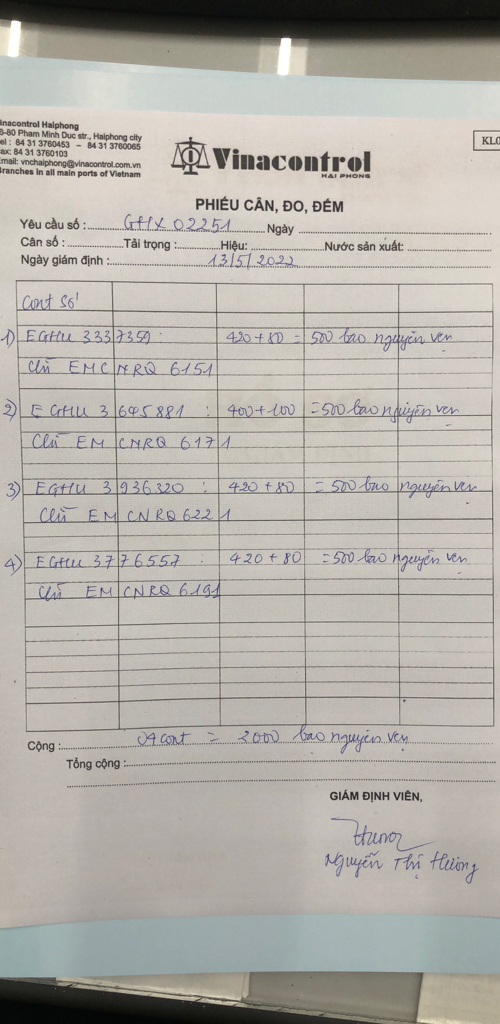 inacontrol Haiphong
8-80 Pham Minh Duc str., Haiphong city
el : 84 31 3760453 – 84 31 3760065
ax: 84 31 3760103
mail: vnchaiphong@vinacontrol.com.vn
ranches in all main ports of Vietnam
KL0
Vinacontrol
HAI PHONG
PHIẾU CÂN, ĐO, ĐẾM
Yêu cầu số : GHX 02251 Ngày
Cân số : Tải trọng : Hiệu: Nước sản xuất:
Ngày giám định : 13/5/2022
Cont Số
1) EGHU 3337359 : 420+80 = 500 bao nguyên vẹn
Chì EMCNRQ 6151
2) EGHU 3645881 : 400+100 = 500 bao nguyên vẹn
Chì EMCNRQ 6171
3) EGHU 3936320 : 420+80 = 500 bao nguyên vẹn
Chì EMCNRQ 6221
4) EGHU 3776557 : 420+80 = 500 bao nguyên vẹn
Chì EMCNRQ 6191
Cộng : 04 cont = 2000 bao nguyên vẹn
Tổng cộng :
GIÁM ĐỊNH VIÊN,
Nguyễn Thị Hường